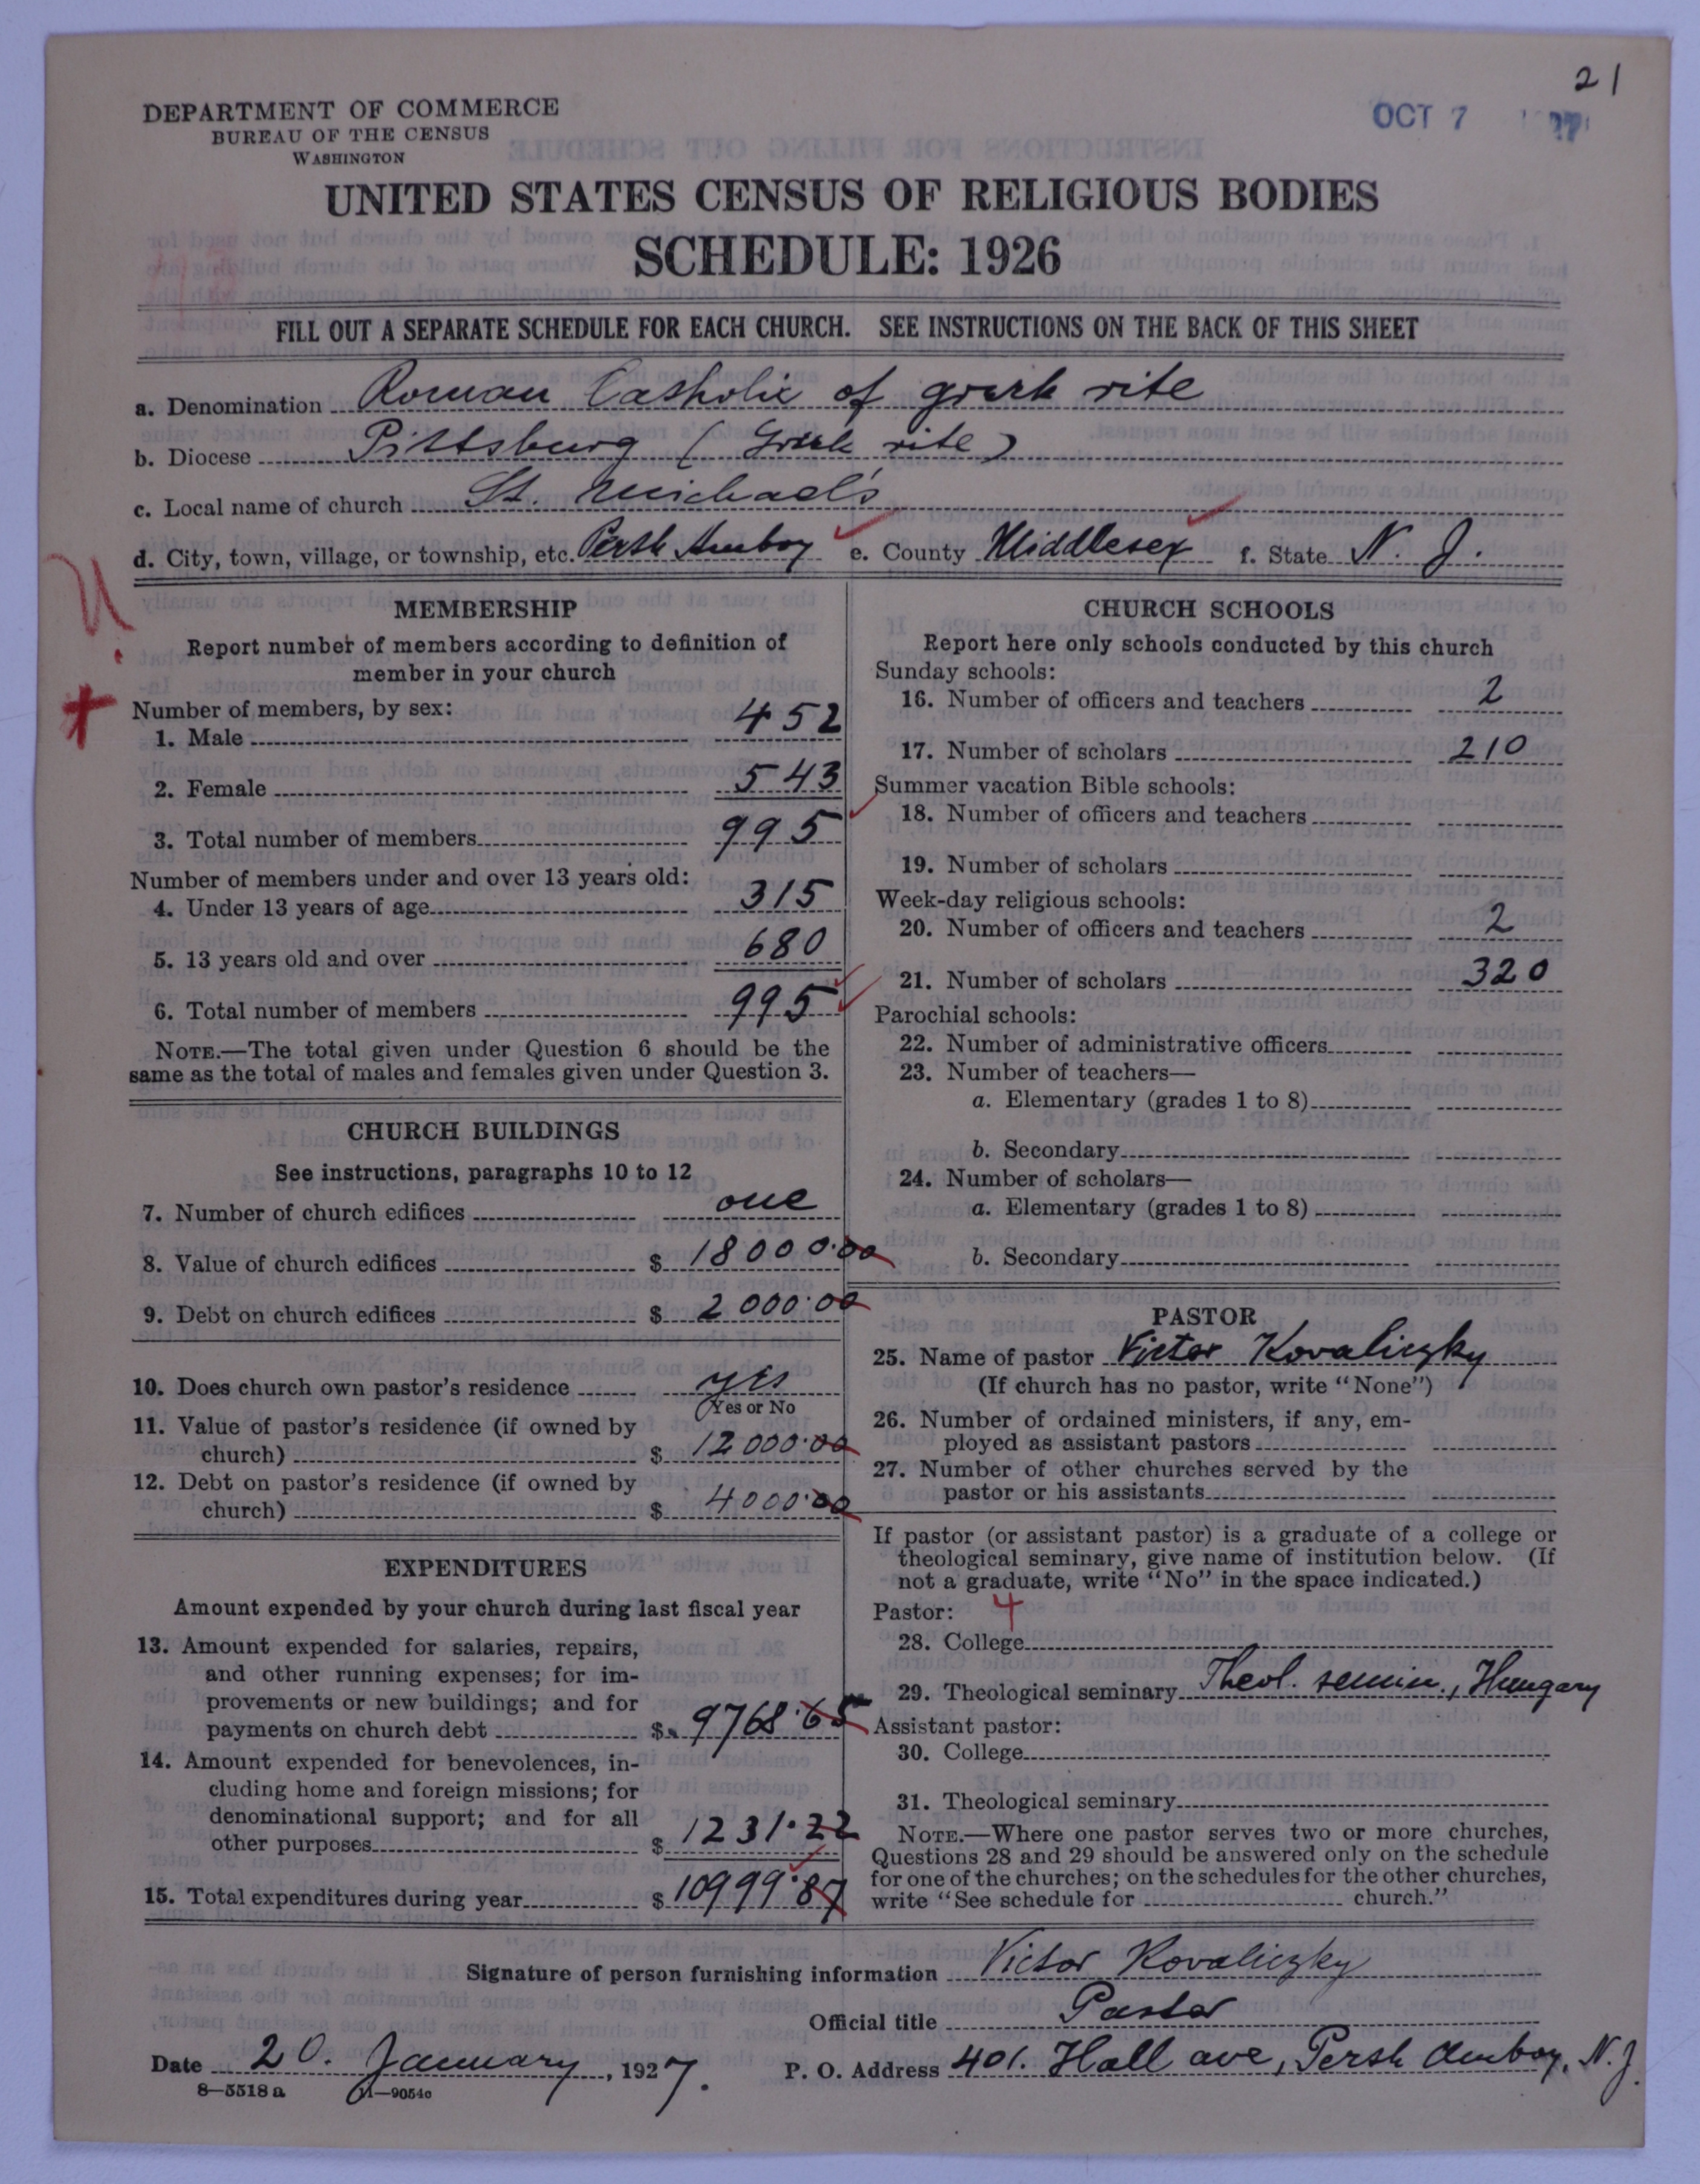 21
OCT 7
DEPARTMENT OF COMMERCE
BUREAU OF THE CENSUS
WASHINGTON
UNITED STATES CENSUS OF RELIGIOUS BODIES
SCHEDULE: 1926
FILL OUT A SEPARATE SCHEDULE FOR EACH CHURCH. SEE INSTRUCTIONS ON THE BACK OF THIS SHEET
a. Denomination Roman Catholic of greek rite
b. Diocese Pittsburg (Greek rite)
c. Local name of church St. Michael's
d. City, town, village, or township, etc. Perth Amboy e. County Middlesex f. State N. J.
MEMBERSHIP
Report number of members according to definition of
member in your church
Number of members, by sex:
1. Male 452
2. Female 543
3. Total number of members 995
Number of members under and over 13 years old:
4. Under 13 years of age 315
5. 13 years old and over 680
6. Total number of members 995
NOTE.—The total given under Question 6 should be the
same as the total of males and females given under Question 3.
CHURCH BUILDINGS
See instructions, paragraphs 10 to 12
7. Number of church edifices one
8. Value of church edifices $ 18000.00
9. Debt on church edifices $ 2000.00
10. Does church own pastor's residence yes
Yes or No
11. Value of pastor's residence (if owned by
church) $ 12000.00
12. Debt on pastor's residence (if owned by
church) $ 4000.00
EXPENDITURES
Amount expended by your church during last fiscal year
13. Amount expended for salaries, repairs,
and other running expenses; for im-
provements or new buildings; and for
payments on church debt $ 9768.65
14. Amount expended for benevolences, in-
cluding home and foreign missions; for
denominational support; and for all
other purposes $ 1231.22
15. Total expenditures during year $ 10999.87
CHURCH SCHOOLS
Report here only schools conducted by this church
Sunday schools:
16. Number of officers and teachers 2
17. Number of scholars 210
Summer vacation Bible schools:
18. Number of officers and teachers
19. Number of scholars
Week-day religious schools:
20. Number of officers and teachers 2
21. Number of scholars 320
Parochial schools:
22. Number of administrative officers
23. Number of teachers—
a. Elementary (grades 1 to 8)
b. Secondary
24. Number of scholars—
a. Elementary (grades 1 to 8)
b. Secondary
PASTOR
25. Name of pastor Victor Kovaliczky
(If church has no pastor, write "None")
26. Number of ordained ministers, if any, em-
ployed as assistant pastors
27. Number of other churches served by the
pastor or his assistants
If pastor (or assistant pastor) is a graduate of a college or
theological seminary, give name of institution below. (If
not a graduate, write "No" in the space indicated.)
Pastor: 4
28. College
29. Theological seminary Theol. semin., Hungary
Assistant pastor:
30. College
31. Theological seminary
NOTE.—Where one pastor serves two or more churches,
Questions 28 and 29 should be answered only on the schedule
for one of the churches; on the schedules for the other churches,
write "See schedule for church."
Signature of person furnishing information Victor Kovaliczky
Official title Pastor
Date 20. January, 1927. P. O. Address 401. Hall ave, Perth Amboy, N. J.
8—5518a 11—9054c